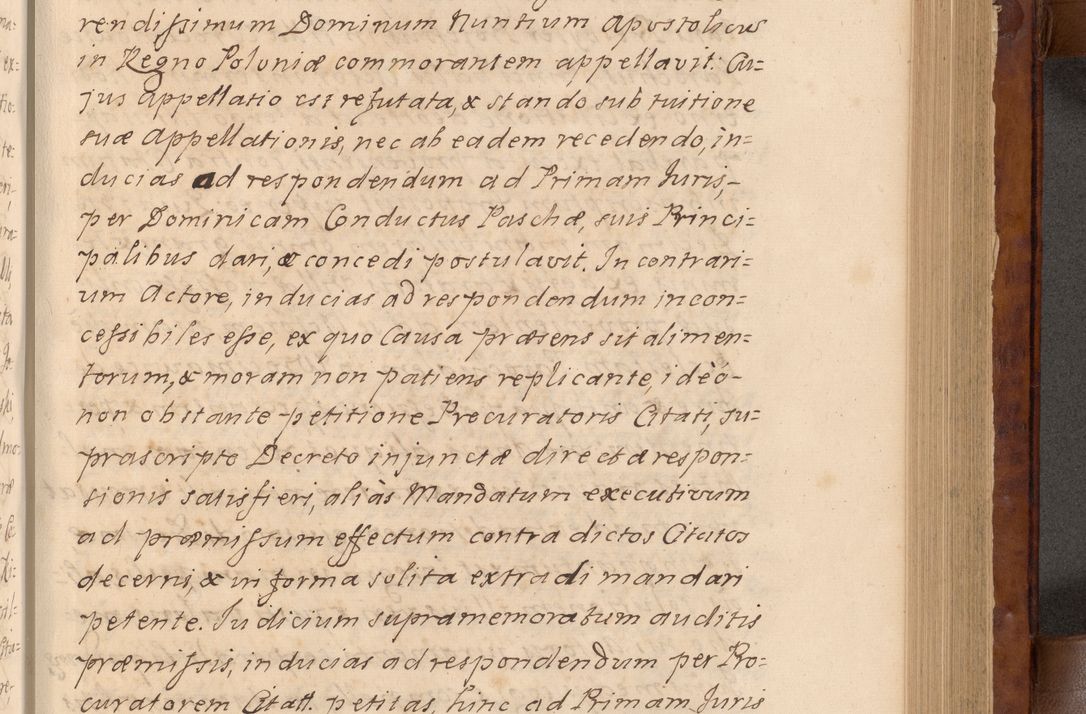 rendissimum Dominum Nuntium Apostolicũ
in Regno Poloniæ commorantem appellavit: Cu=
jus Appellatio est refutata, & stando sub tuitione
suæ Appellationis, nec ab eadem recedendo, in=
ducias ad respondendum ad Primam Juris,
per Dominicam Conductus Paschæ, suis Princi=
palibus dari, & concedi postulavit. In contrari=
um Actore, inducias ad respondendum incon=
cessibiles esse, ex quo Causa præsens sit alimen=
torum, & moram non patiens replicante, ideò
non obstante petitione Procuratoris Citati, su=
prascripto Decreto injunctæ directæ respon=
sionis satisfieri, aliàs Mandatum executivum
ad præmissum effectum contra dictos Citatos
decerni, & in forma solita extradi mandari
petente. Judicium supramemoratum auditis
præmissis, inducias ad respondendum per Pro=
curatorem Citatt. petitas, hinc ad Primam Juris